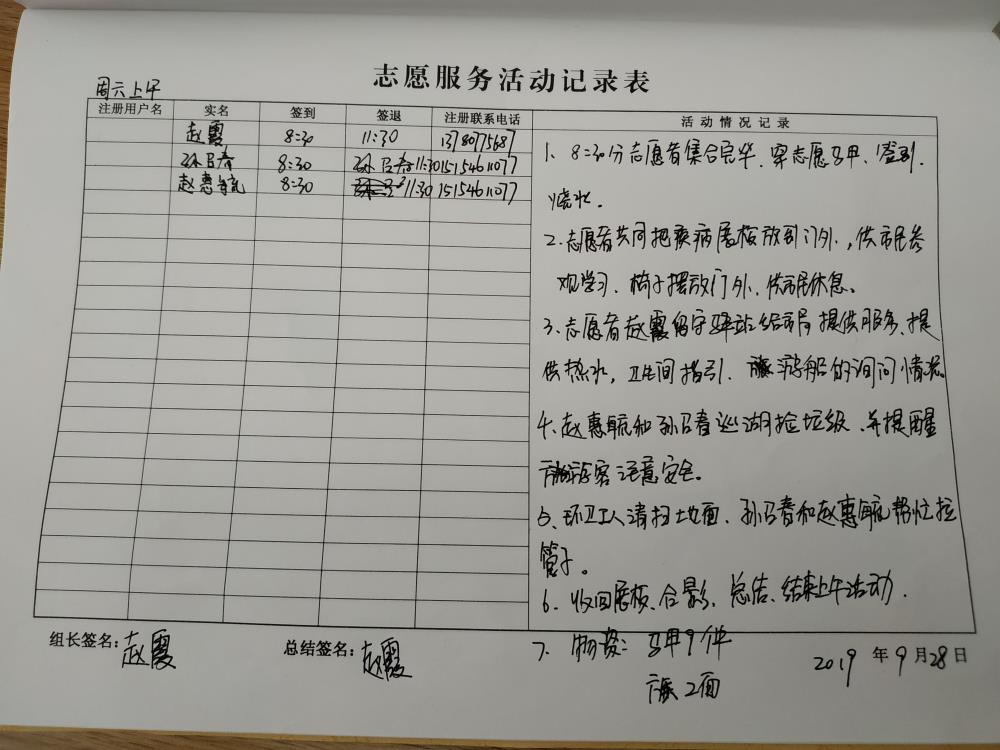 志愿服务活动记录表
周六上午
注册用户名 实名 签到 签退 注册联系电话 活动情况记录
赵霞 8:30 11:30 1378077568
孙召春 8:30 孙召春 11:30 15154611077
赵惠毓 8:30 11:30 15154611077
1、8:30分志愿者集合完毕、穿志愿马甲、签到、
烧水。
2、志愿者共同把疾病展板放到门外,供市民参
观学习、椅子摆放门外、供市民休息。
3、志愿者赵霞留守驿站给市民提供服务、提
供热水,卫生间指引、游船的询问情况。
4、赵惠毓和孙召春巡湖捡垃圾、并提醒
游客注意安全。
5、环卫工人清扫地面、孙召春和赵惠毓帮忙拉
管子。
6、收回展板、合影、总结、结束上午活动.
7、物资:马甲9件
旗2面
组长签名:赵霞 总结签名:赵霞
2019年9月28日